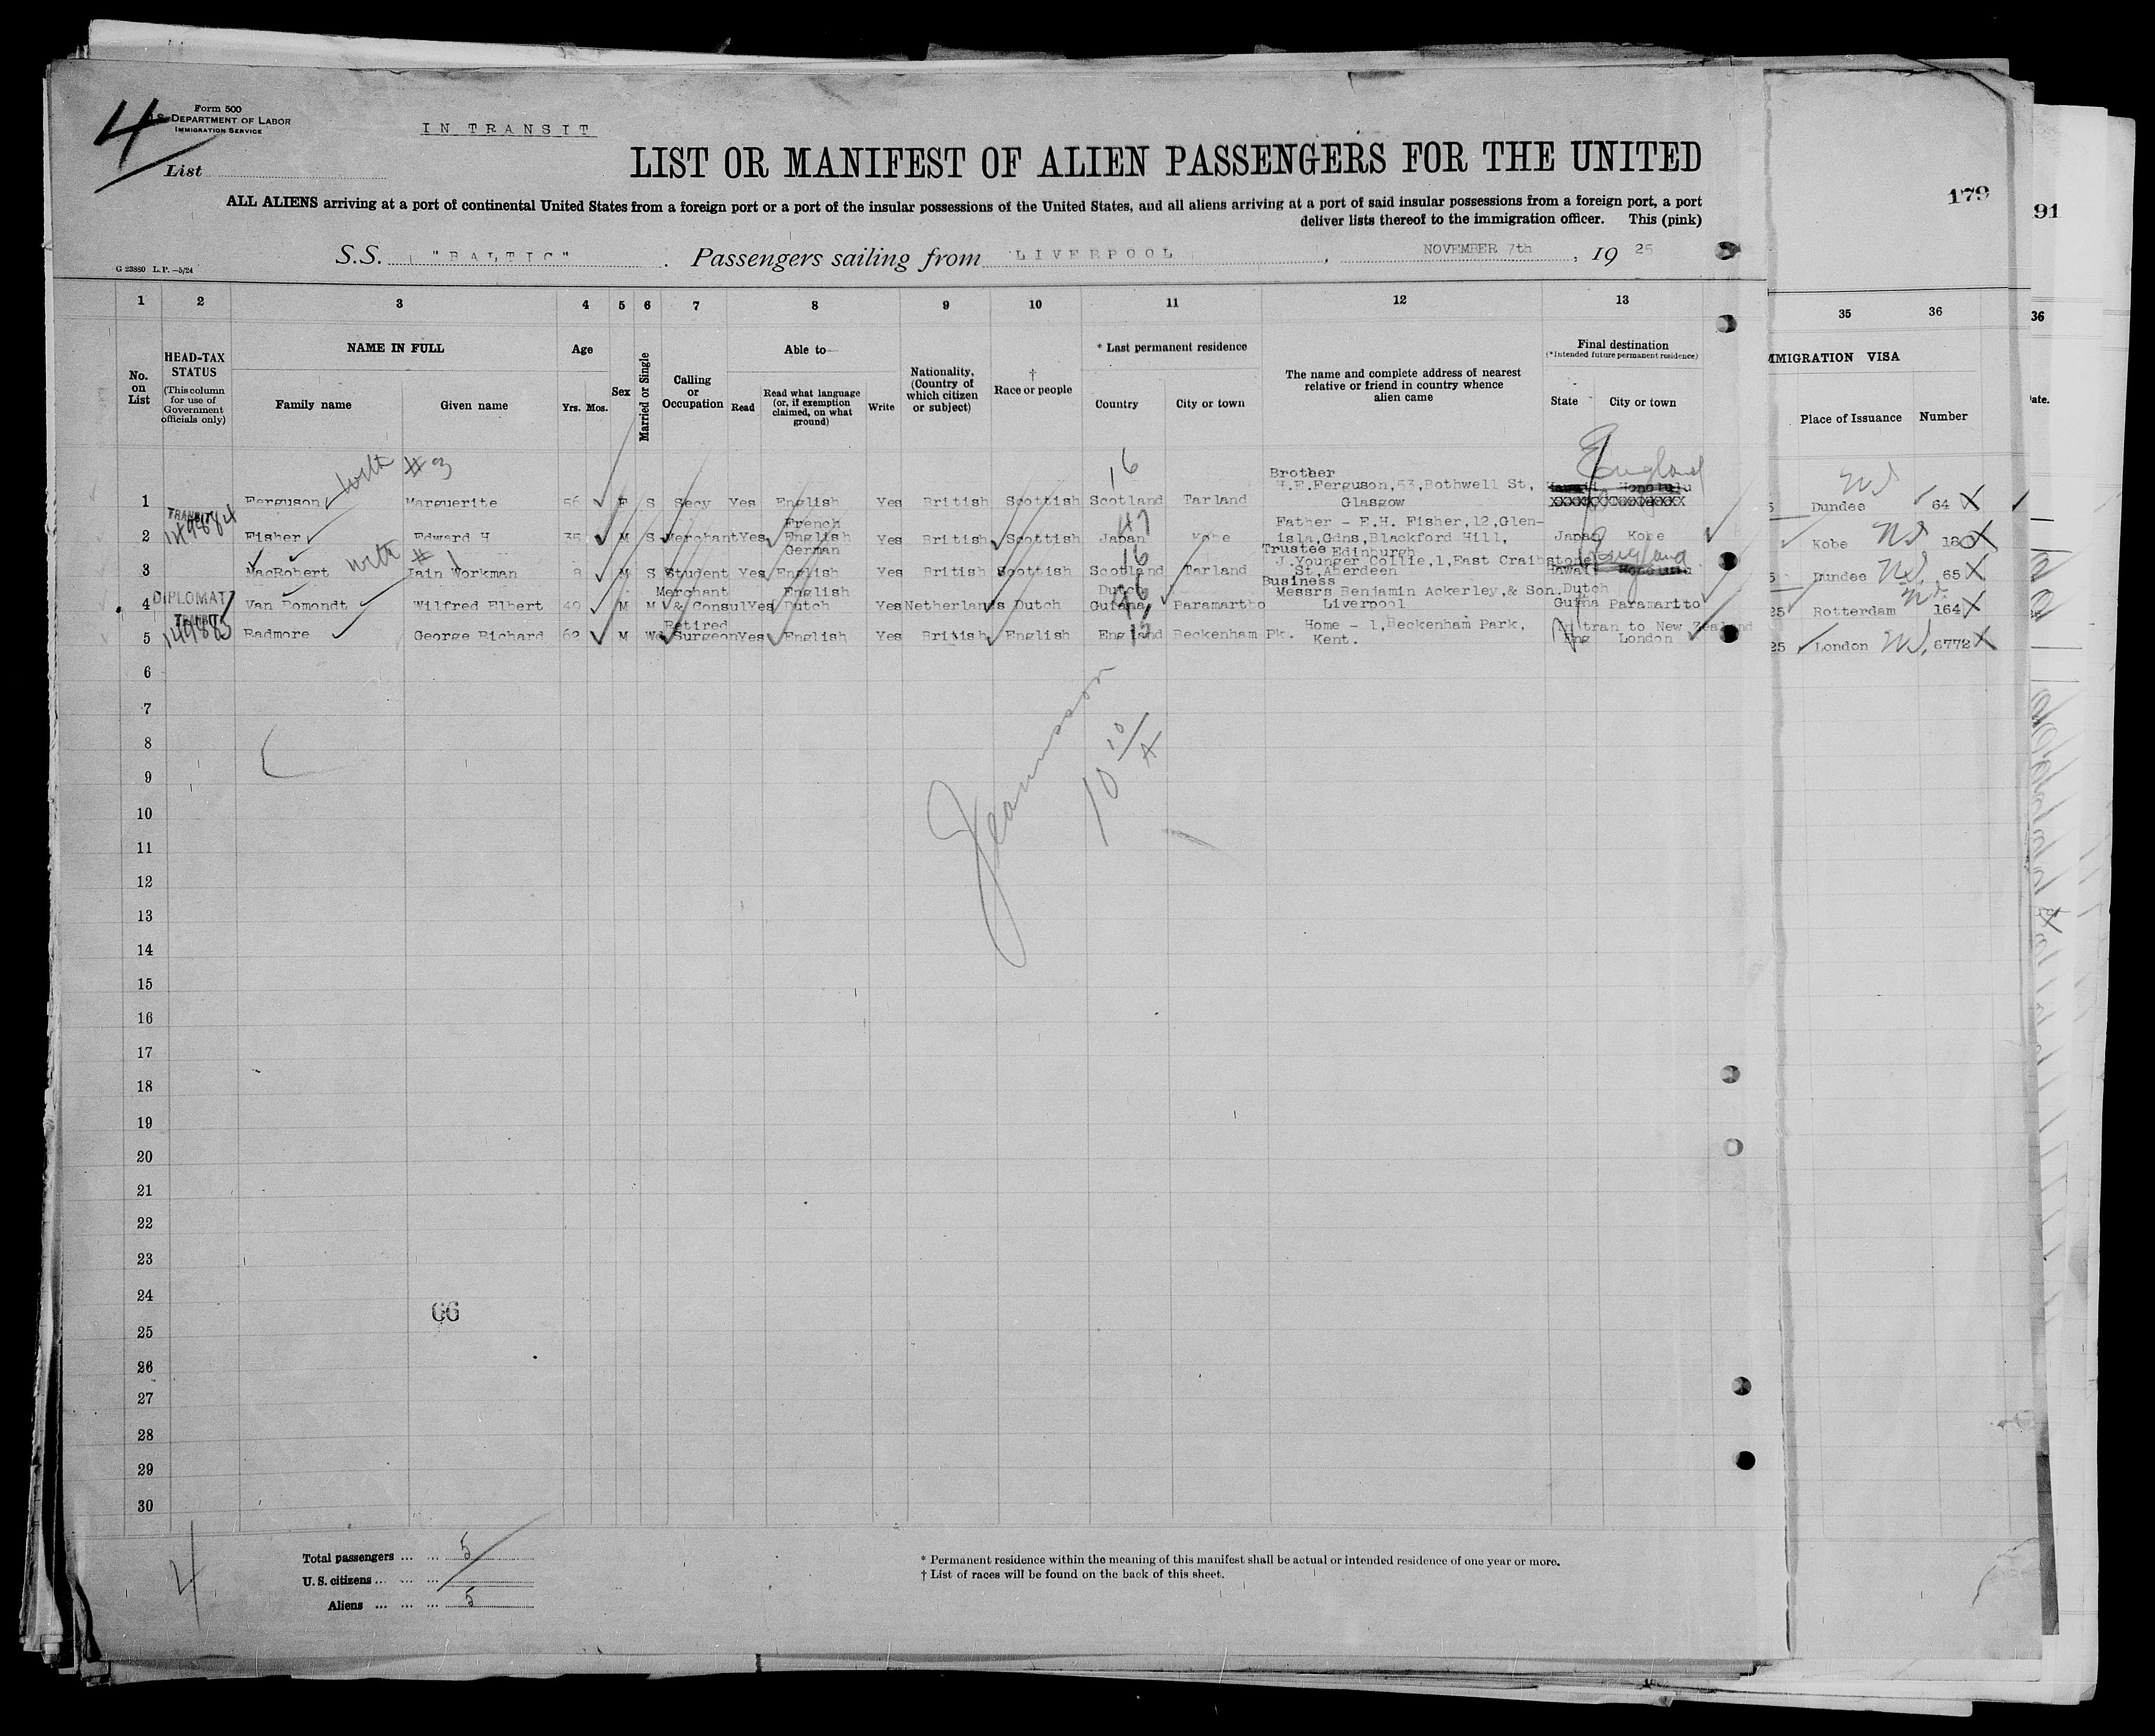 4
Form 500
DEPARTMENT OF LABOR
IMMIGRATION SERVICE
List
IN TRANSIT
LIST OR MANIFEST OF ALIEN PASSENGERS FOR THE UNITED
ALL ALIENS arriving at a port of continental United States from a foreign port or a port of the insular possessions of the United States, and all aliens arriving at a port of said insular possessions from a foreign port, a port
deliver lists thereof to the immigration officer. This (pink)
S.S. "BALTIC" . Passengers sailing from LIVERPOOL , NOVEMBER 7th , 19 25
G 23880 L.P.—5/24
179
91
1 2 3 4 5 6 7 8 9 10 11 12 13 35 36 36
No. on List
HEAD-TAX STATUS
(This column for use of Government officials only)
NAME IN FULL
Family name Given name
Age
Yrs. Mos.
Sex
Married or Single
Calling or Occupation
Able to—
Read
Read what language (or, if exemption claimed, on what ground)
Write
Nationality. (Country of which citizen or subject)
† Race or people
* Last permanent residence
Country City or town
The name and complete address of nearest relative or friend in country whence alien came
Final destination
(*Intended future permanent residence)
State City or town
MMIGRATION VISA
Place of Issuance Number
ate.
with #3
16
England
Brother
1 Ferguson Marguerite 56 F S Secy Yes English Yes British Scottish Scotland Tarland H.F.Ferguson,53,Bothwell St, Glasgow Honolulu Dundee 64
TRANSIT
149884
2 Fisher Edward H 35 M S Merchant Yes French English German Yes British Scottish Japan Kobe Father - E.H. Fisher,12,Glen-isla,Gdns,Blackford Hill, Edinburgh Japan Kobe Kobe 180
47
with # 1
16
England
3 MacRobert Iain Workman 8 M S Student Yes English Yes British Scottish Scotland Tarland Trustee J.Younger Collie,1,East Craibstone St,Aberdeen Hawaii Honolulu Dundee 65
DIPLOMAT
4 Van Romondt Wilfred Elbert 49 M M Merchant & Consul Yes English Dutch Yes Netherlands Dutch Dutch Guiana Paramartbo Business Messrs Benjamin Ackerley,& Son, Liverpool Dutch Guina Paramaritto 25 Rotterdam 164
TRANSIT
149885
5 Radmore George Richard 62 M Wd Retired Surgeon Yes English Yes British English England Beckenham Pk. Home - 1,Beckenham Park, Kent. In tran to New Zealand Eng London 25 London 6772
6
7
8
9
10
11
12
13
14
15
16
17
18
19
20
21
22
23
24
25
26
27
28
29
30
66
4
Total passengers ... ... 5
U. S. citizens ... ... ...
Aliens ... ... ... 5
* Permanent residence within the meaning of this manifest shall be actual or intended residence of one year or more.
† List of races will be found on the back of this sheet.